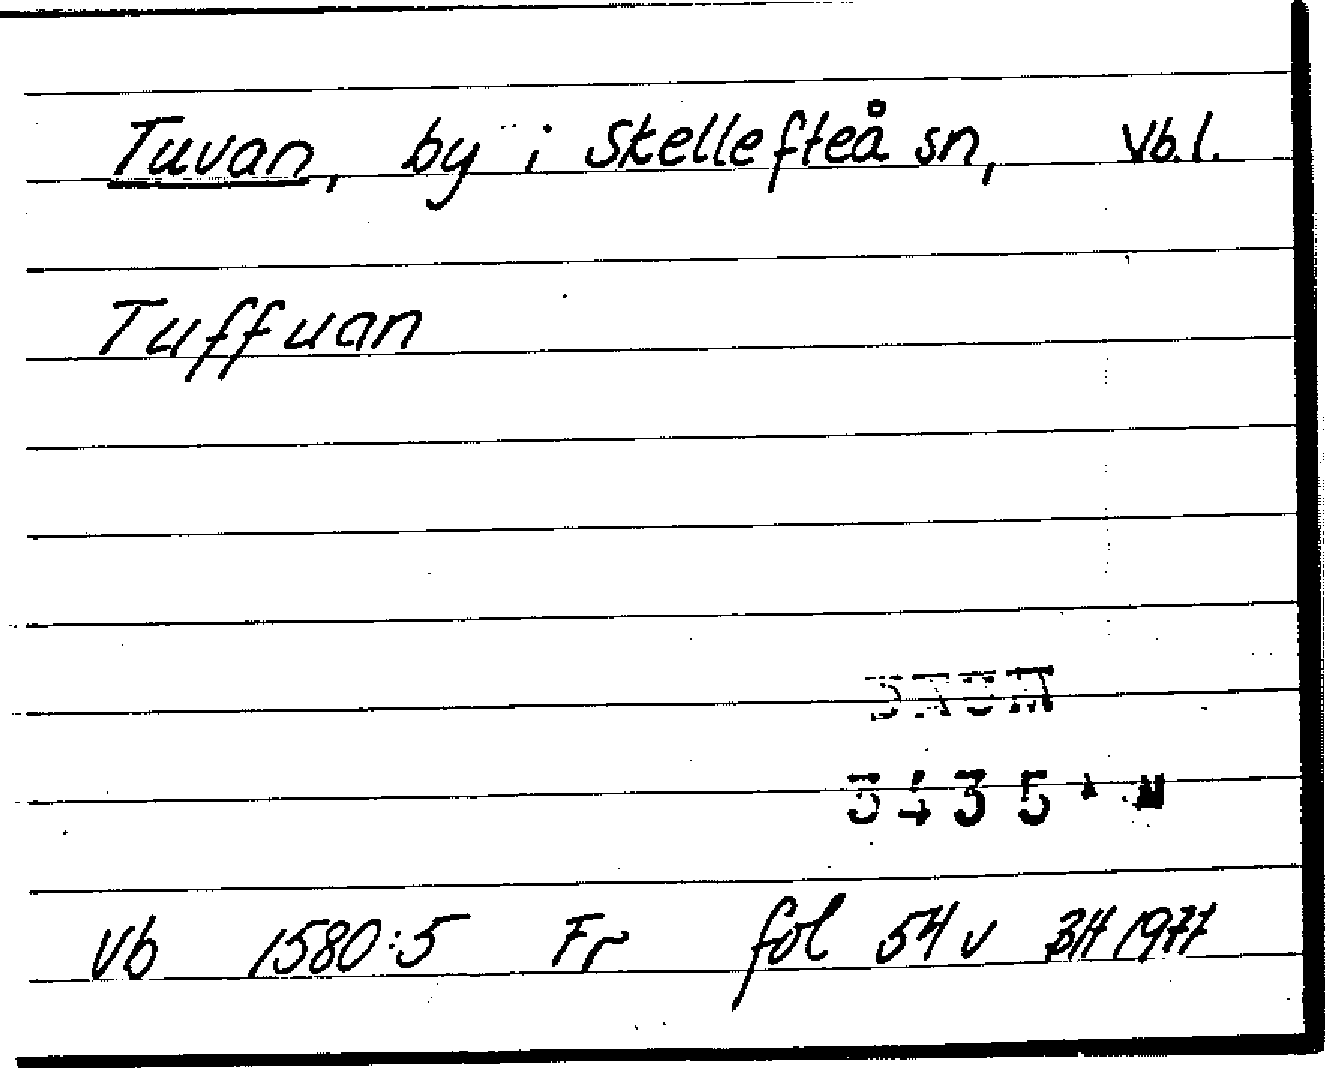 Tuvan, by i Skellefteå sn, Vb.l.
Tuffuan
3435
Vb 1580:5 Fr fol 54 v BH 1977